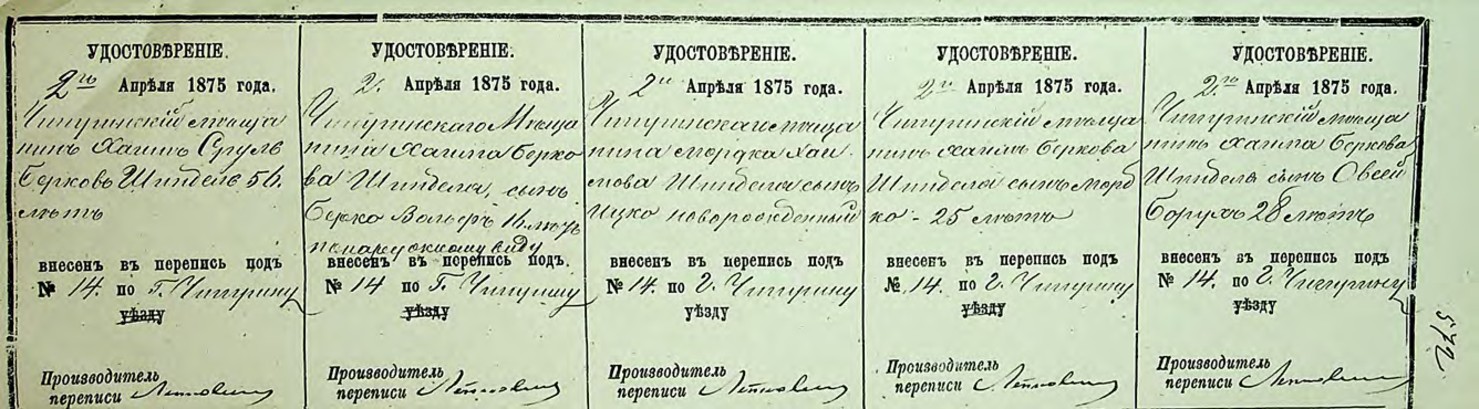 УДОСТОВѢРЕНІЕ.
2го Апрѣля 1875 года.
Чигиринскій мѣща
нинъ Хаимъ Сруль
Берковъ Шпидель 56.
лѣтъ
внесенъ въ перепись подъ
№ 14. по Г. Чигирину
уѣзду
Производитель
переписи
УДОСТОВѢРЕНІЕ.
2. Апрѣля 1875 года.
Чигиринскаго Мѣща
нина Хаима Берко
ва Шпинделя, сынъ
Берко Вольфъ 16 лѣтъ
по наружному виду
внесенъ въ перепись подъ.
№ 14 по Г. Чигирину
уѣзду
Производитель
переписи
УДОСТОВѢРЕНІЕ.
2го Апрѣля 1875 года.
Чигиринскаго мѣща
нина Мордка Хаи
мова Шпинделя сынъ
Ицко новорожденный
внесенъ въ перепись подъ
№ 14. по Г. Чигирину
уѣзду
Производитель
переписи
УДОСТОВѢРЕНІЕ.
2го Апрѣля 1875 года.
Чигиринскій мѣща
нинъ Хаимъ Беркова
Шпинделя сынъ Морд
ко - 25 лѣтъ
внесенъ въ перепись подъ
№ 14. по Г. Чигирину
уѣзду
Производитель
переписи
УДОСТОВѢРЕНІЕ.
2го Апрѣля 1875 года.
Чигиринскій мѣща
нинъ Хаима Беркова
Шпинделя сынъ Овсей
Борухъ 28 лѣтъ
внесенъ въ перепись подъ
№ 14. по Г. Чигирину
уѣзду
Производитель
переписи
572